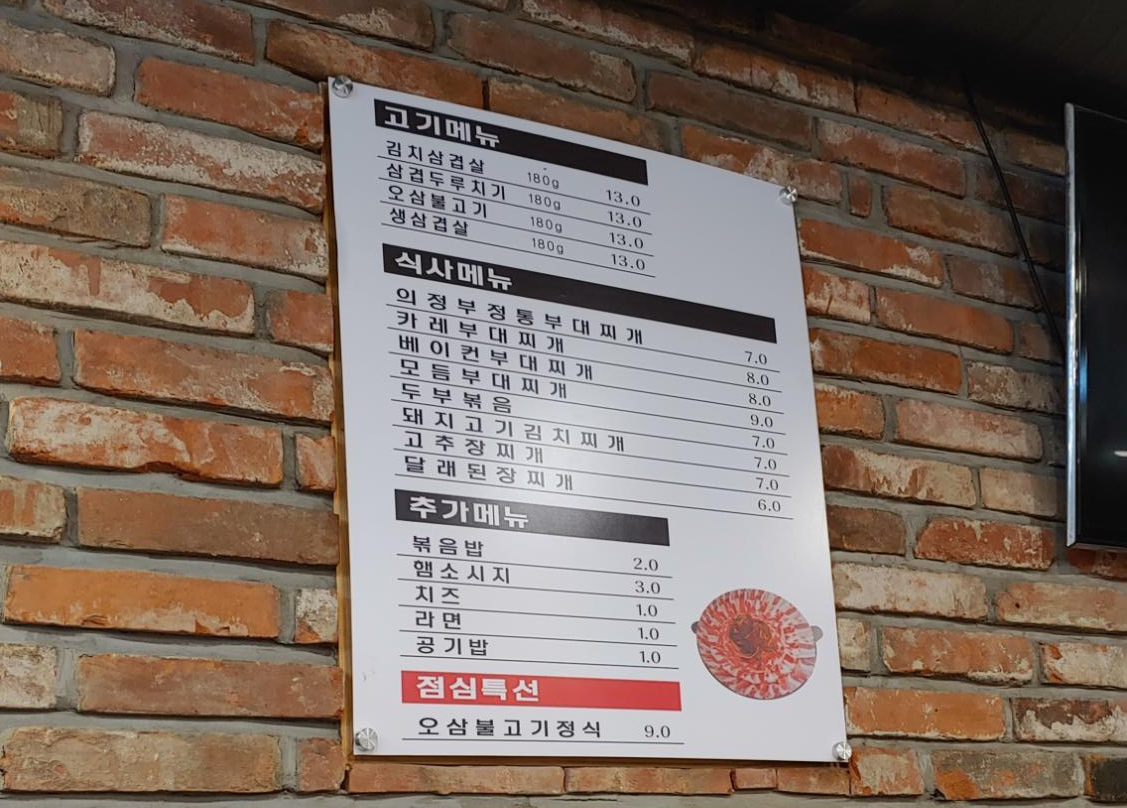 고기메뉴
김치삼겹살 180g 13.0
삼겹두루치기 180g 13.0
오삼불고기 180g 13.0
생삼겹살 180g 13.0
식사메뉴
의정부정통부대찌개 7.0
카레부대찌개 8.0
베이컨부대찌개 8.0
모듬부대찌개 9.0
두부볶음 7.0
돼지고기김치찌개 7.0
고추장찌개 7.0
달래된장찌개 6.0
추가메뉴
볶음밥 2.0
햄소시지 3.0
치즈 1.0
라면 1.0
공기밥 1.0
점심특선
오삼불고기정식 9.0